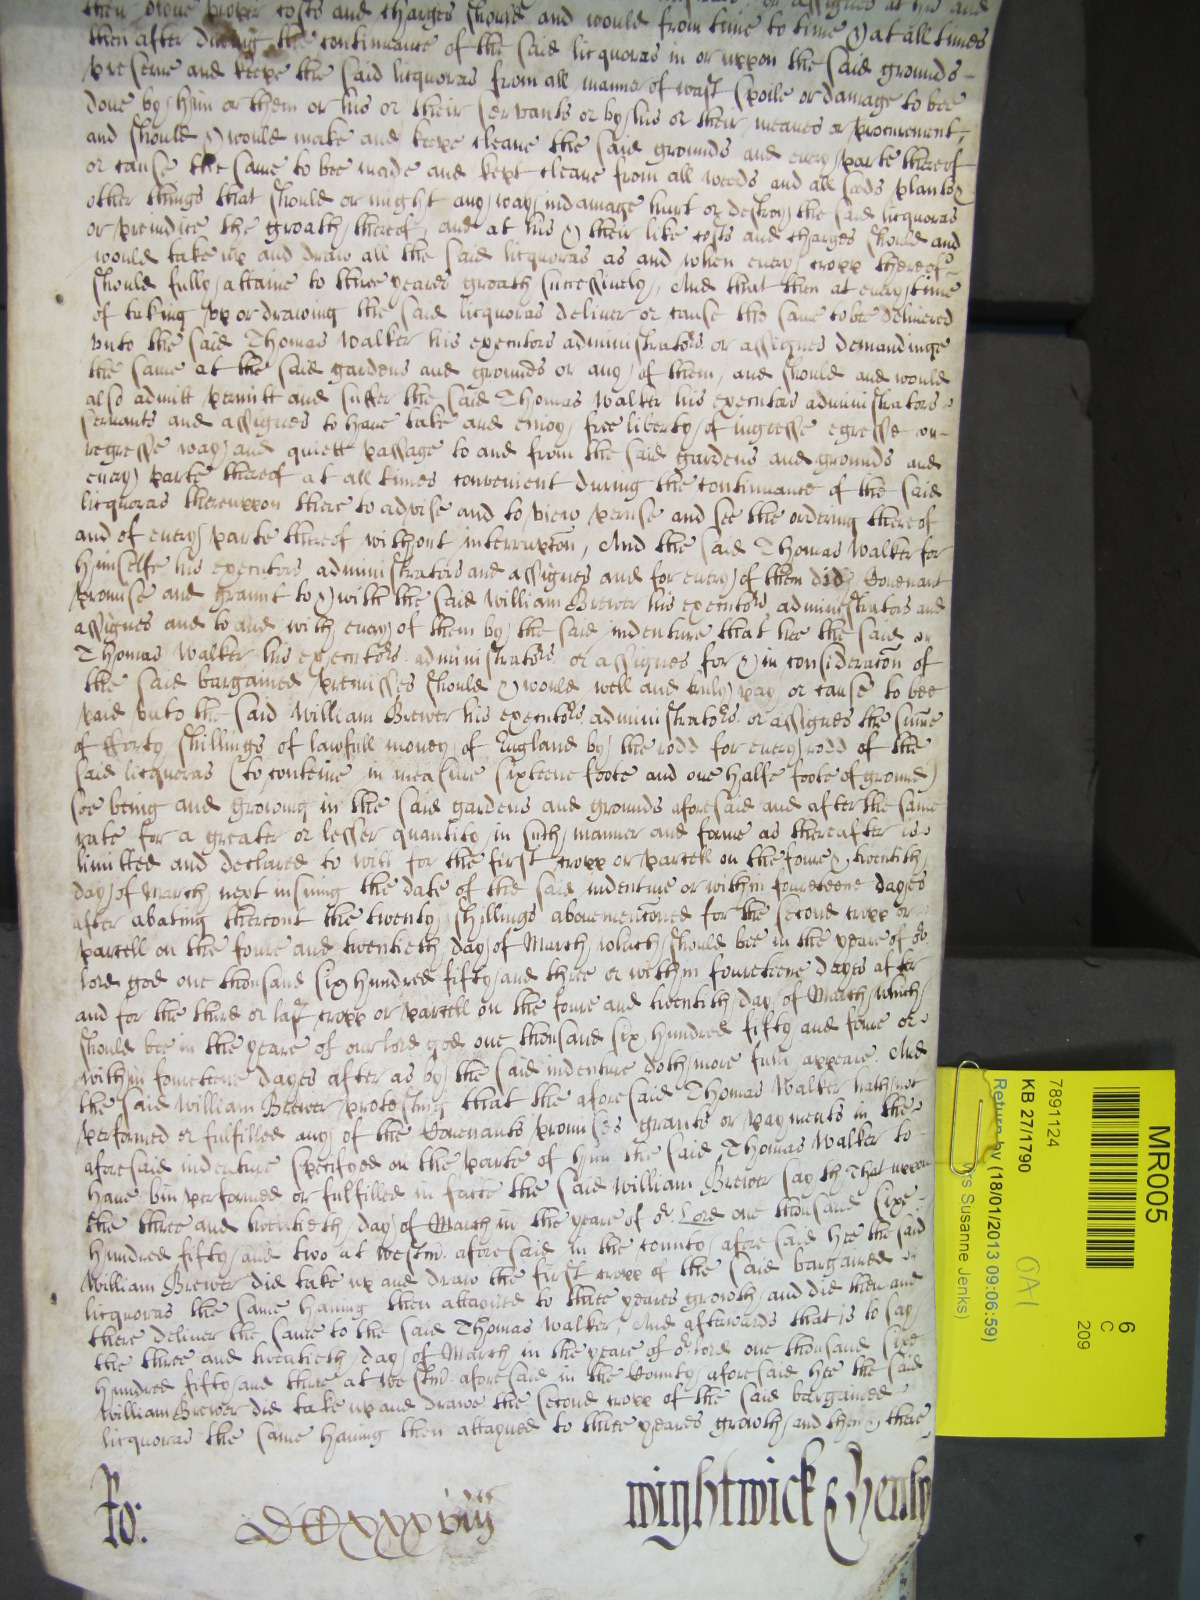 their owne proper costs and charges should and would from time to time & at all times
then after during the continuance of the said licquoras in or uppon the said grounds
preserve and keepe the said licquoras from all manner of wast spoile or damage to bee
done by him or them or his or their servants or by his or their meanes or procurement,
and should & would make and keepe cleane the said grounds and every parte thereof
or cause the same to bee made and kept cleane from all weeds and all seeds plants &
other things that should or might any way indamage hurt or destroy the said licquoras
or preiudice the groath thereof, and at his & their like costs and charges should and
would take up and draw all the said licquoras as and when every cropp thereof
should fully attaine to three yeares groath successively, And that then at every time
of taking upp or drawing the said licquoras deliver or cause the same to be delivered
unto the said Thomas Walker his executors administrators or assignes demandinge
the same at the said gardens and grounds or any of them, and should and would
also admitt permitt and suffer the said Thomas Walker his executors administrators
servants and assignes to have take and enioy free liberty of ingresse egresse
regresse way and quiett passage to and from the said gardens and grounds and
every parte thereof at all times convenient during the continuance of the said
licquoras thereuppon there to advise and to view peruse and see the ordering thereof
and of every parte thereof without interrupcon, And the said Thomas Walker for
himselfe his executors administrators and assignes and for every of them did Covenant
promise and graunt to & with the said William Brewer his executors administrators and
assignes and to and with every of them by the said indenture that hee the said
Thomas Walker his executors administrators or assignes for & in consideracon of
the said bargained premisses should & would well and truly pay or cause to bee
paid unto the said William Brewer his executors administrators or assignes the summe
of fforty shillings of lawfull money of England by the rodd for every rodd of the
said licquoras (to conteine in measure sixteene foote and one halfe foote of ground)
soe being and growing in the said gardens and grounds aforesaid and after the same
rate for a greater or lesser quantity in such manner and forme as thereafter is
limitted and declared to witt for the first cropp or parcell on the foure & twentith
day of March next insuing the date of the said indenture or within fourteene dayes
after abating thereout the twenty shillings abovemenconed for the second cropp or
parcell on the foure and twentieth day of March which should bee in the yeare of or
lord god one thousand six hundred fifty and three or within fourteene dayes after
and for the third or last cropp or parcell on the foure and twentith day of March which
should bee in the yeare of our lord god one thousand six hundred fifty and foure or
within fourteene dayes after as by the said indenture doth more fully appeare. And
the said William Brewer protesting that the aforesaid Thomas Walker hath not
performed or fulfilled any of the Covenants promises graunts or payments in the
aforesaid indenture specifyed on the parte of him the said Thomas Walker to
have bin performed or fulfilled in facte the said William Brewer sayth That uppon
the three and twentieth day of March in the yeare of or Lord one thousand sixe
hundred fifty and two at Westm. aforesaid in the county aforesaid hee the said
William Brewer did take up and draw the first cropp of the said bargained
licquoras the same having then attayned to three yeares growth, and did then and
there deliver the same to the said Thomas Walker, And afterwards that is to say
the three and twentieth day of March in the yeare of or lord one thousand sixe
hundred fifty and three at Westm. aforesaid in the County aforesaid hee the said
William Brewer did take up and drawe the second cropp of the said bargained
licquoras the same having then attayned to three yeares growth, and then & there
Ro:
DCxxxviij
Wightwick & Henly
MR005
6
C
209
7891124
KB 27/1790
Return by (18/01/2013 09:06:59)
rs Susanne Jenks)